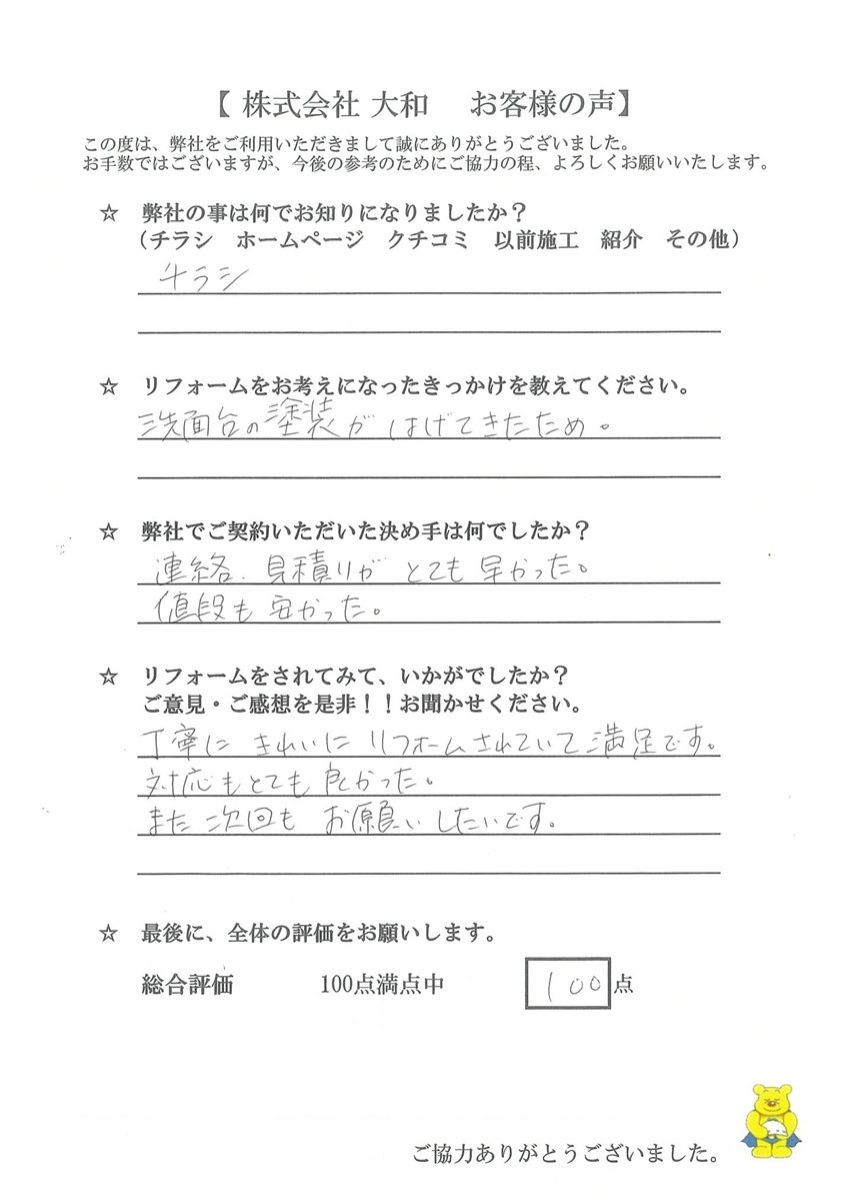 【 株式会社 大和　お客様の声】
この度は、弊社をご利用いただきまして誠にありがとうございました。
お手数ではございますが、今後の参考のためにご協力の程、よろしくお願いいたします。
☆　弊社の事は何でお知りになりましたか？
（チラシ　ホームページ　クチコミ　以前施工　紹介　その他）
チラシ
☆　リフォームをお考えになったきっかけを教えてください。
洗面台の塗装が はげてきたため。
☆　弊社でご契約いただいた決め手は何でしたか？
連絡、見積りが とても 早かった。
値段も 安かった。
☆　リフォームをされてみて、いかがでしたか？
ご意見・ご感想を是非！！お聞かせください。
丁寧に きれいに リフォームされていて 満足です。
対応もとても 良かった。
また 次回も お願いしたいです。
☆　最後に、全体の評価をお願いします。
総合評価　100点満点中　100点
ご協力ありがとうございました。